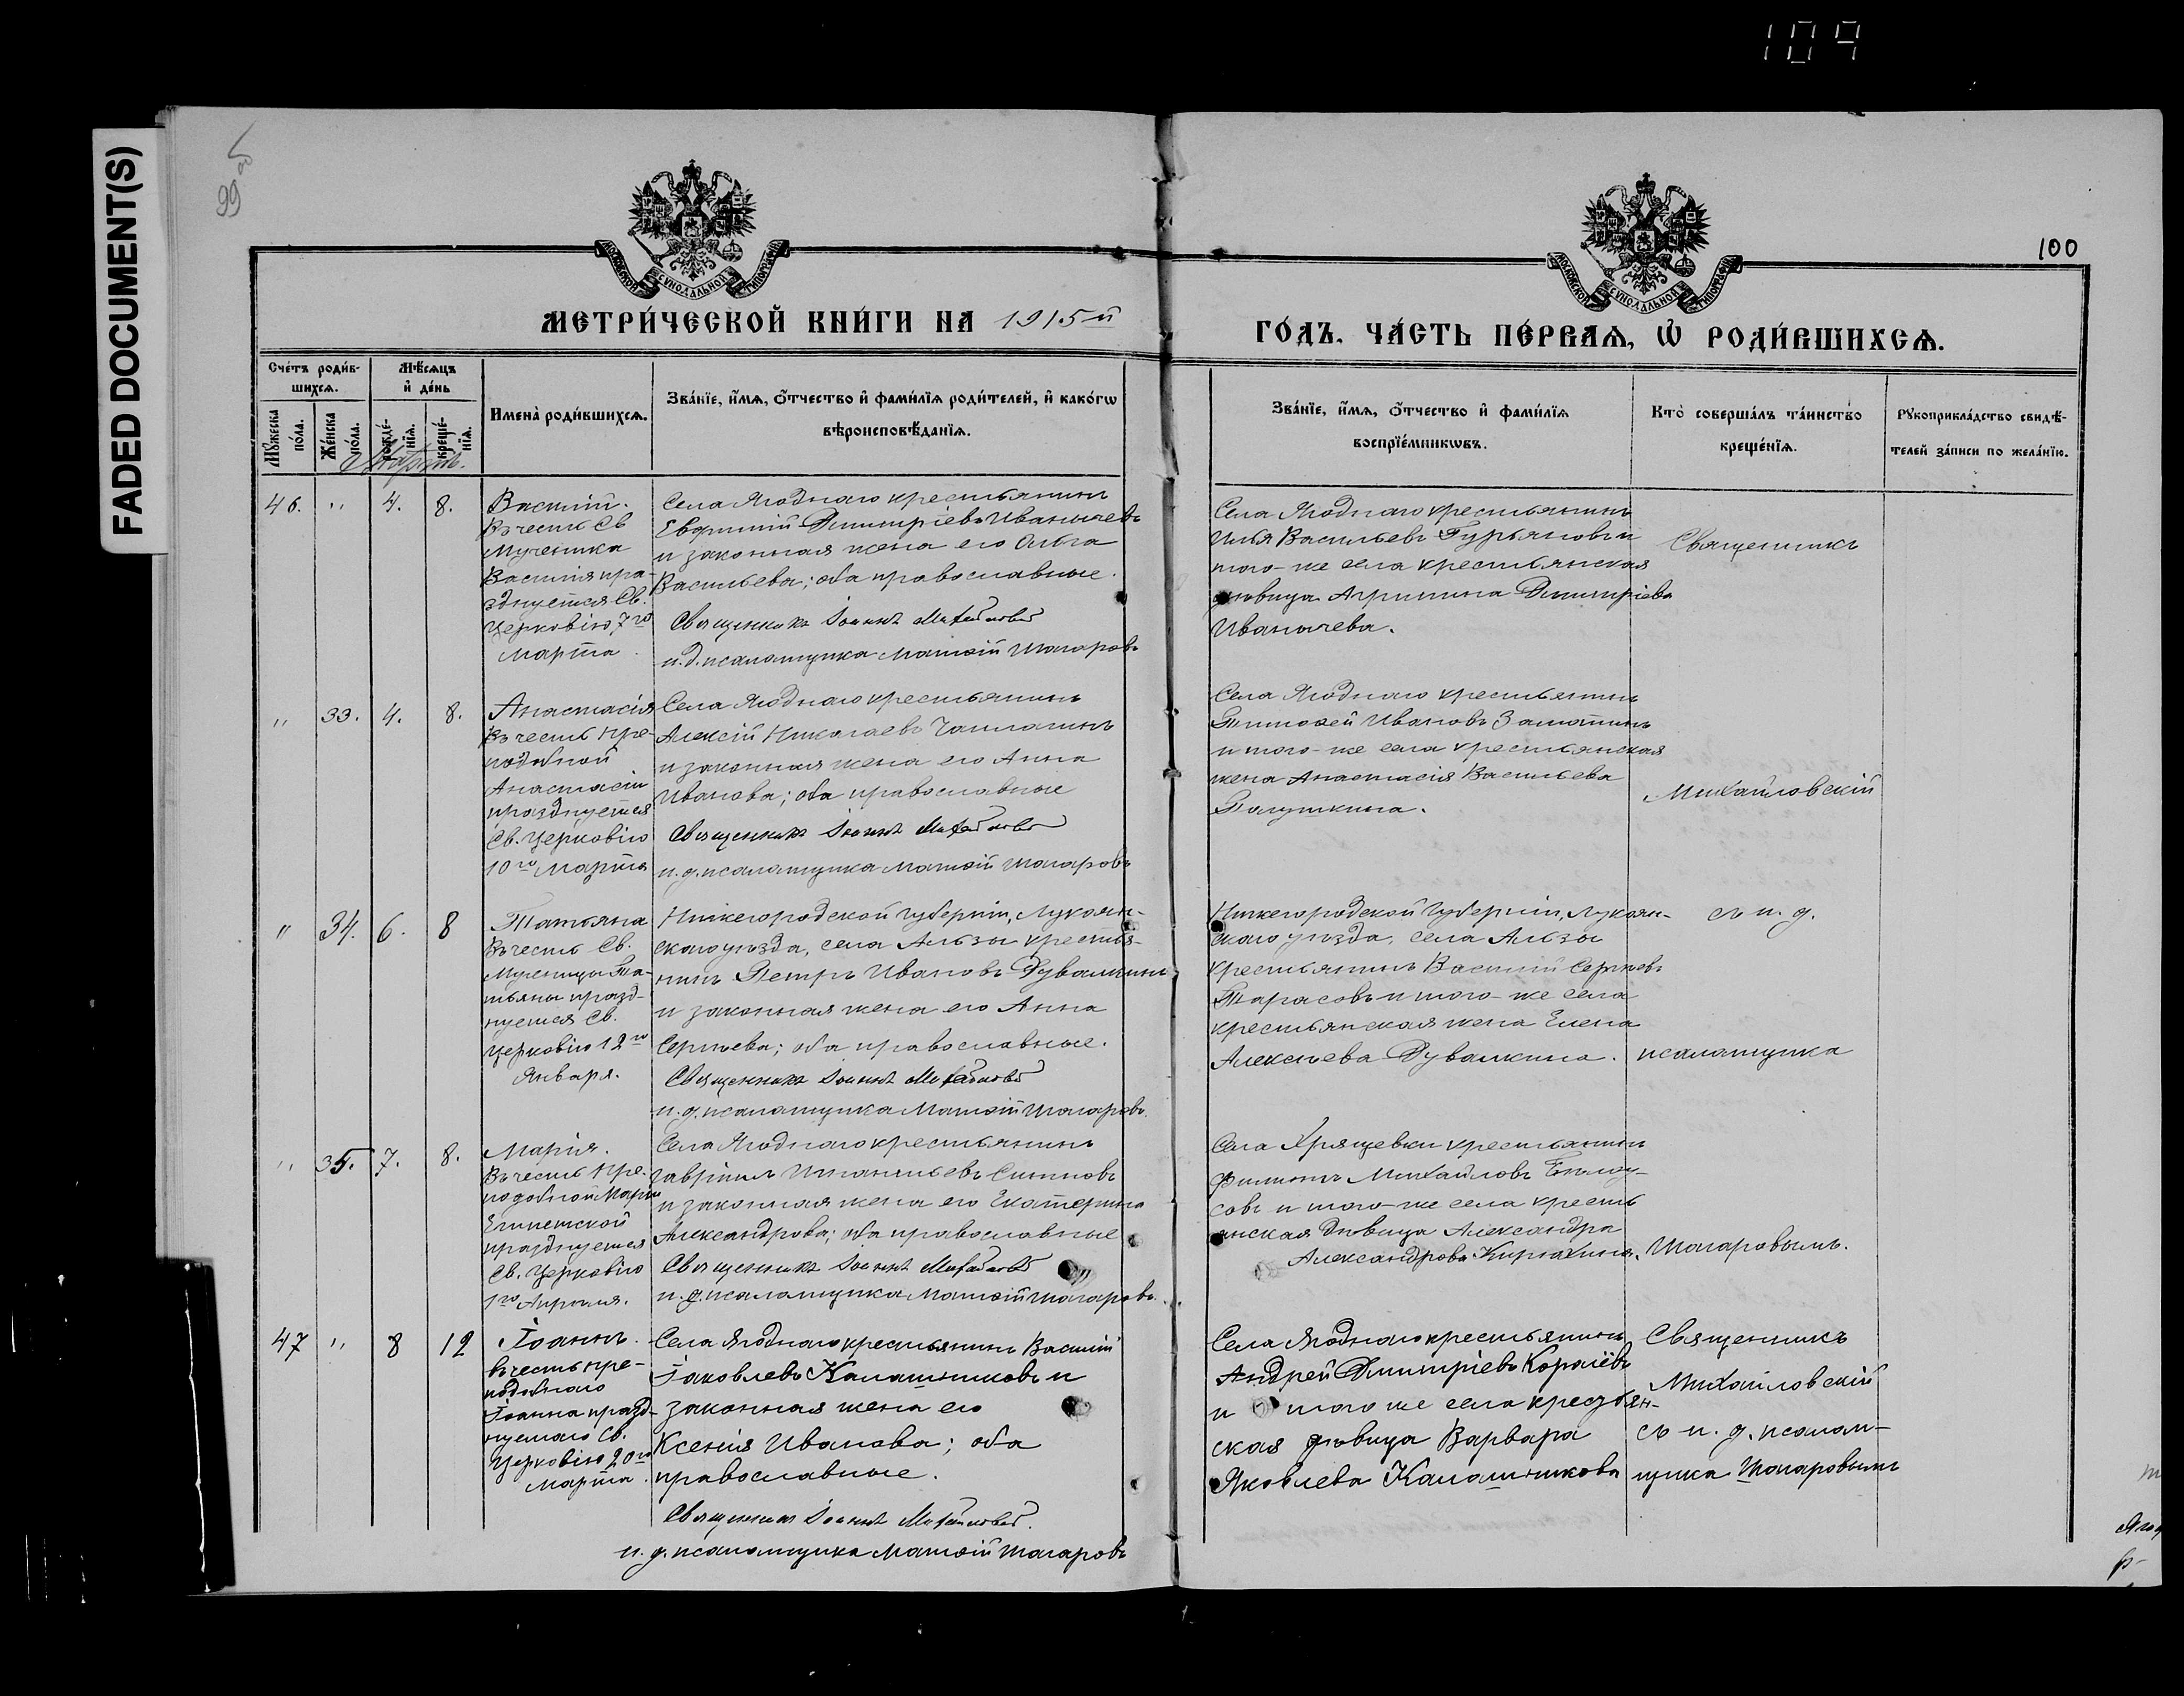 109
FADED DOCUMENT(S)
99 об
100
МОСКОВСКОЙ СѴНОДАЛЬНОЙ ТИПОГРАФІИ
МОСКОВСКОЙ СѴНОДАЛЬНОЙ ТИПОГРАФІИ
МЕТРИ́ЧЕСКОЙ КНИ́ГИ НА 1915й
ГО́ДЪ. ЧА́СТЬ ПЕ́РВАѦ, Ѡ҆ РОДИ́ВШИХСѦ.
Сче́тъ роди́в-
шихсѧ.
Мѣ́сѧцъ
и҆ де́нь
Мꙋ́жеска
по́ла.
Же́нска
по́ла.
рожде́-
нїѧ.
креще́-
нїѧ.
Мартъ.
Имена̀ роди́вшихсѧ.
Зва́нїе, и҆́мѧ, ѻ҆́тчество и҆ фами́лїѧ роди́телей, и҆ како́гѡ
вѣроисповѣ́данїѧ.
Зва́нїе, и҆́мѧ, ѻ҆́тчество и҆ фами́лїѧ
воспрїе́мникѡвъ.
Кто̀ соверша́лъ та́инство
креще́нїѧ.
Рꙋкоприкла́дство свидѣ́-
телей за́писи по жела́нїю.
46. " 4. 8.
Василій.
Въ честь Св
Мученика
Василія пра-
зднуется Св.
Церковію 7го
Марта.
Села Ягоднаго крестьянинъ
Евфимій Димитріевъ Иванычевъ
и законная жена его Ольга
Васильева; оба православные.
Священникъ Іоаннъ Михайловскій
и.д. псаломщика Матѳій Шагаровъ
Села Ягоднаго крестьянинъ
Илья Васильевъ Гурьяновъ и
того-же села крестьянская
дѣвица Агрипина Димитріева
Иванычева.
Священникъ
" 33. 4. 8.
Анастасія
Въ честь Пре-
подобной
Анастасіи
празднуется
Св. Церковію
10го Марта
Села Ягоднаго крестьянинъ
Алексій Николаевъ Чаплагинъ
и законная жена его Анна
Иванова; оба православные
Священникъ Іоаннъ Михайловскій
и.д. псаломщика Матѳій Шагаровъ
Села Ягоднаго крестьянинъ
Тимоѳей Ивановъ Заматинъ
и того-же села крестьянская
жена Анастасія Васильева
Полушкина.
Михайловскій
" 34. 6. 8
Татьяна
Въ честь Св.
Мученицы Та-
тьяны празд-
нуется Св.
Церковію 12го
Января.
Нижегородской губерніи, Лукоян-
скаго уѣзда, села Альзы крестья-
нинъ Петръ Ивановъ Дувалкинъ
и законная жена его Анна
Сергѣева; оба православные.
Священникъ Іоаннъ Михайловскій
и.д. псаломщика Матѳій Шагаровъ.
Нижегородской Губерніи, Лукоян-
скаго уѣзда, села Альзы
крестьянинъ Василій Сергѣевъ
Тарасовъ и того-же села
крестьянская жена Елена
Алексѣева Дувалкина.
съ и. д.
псаломщика
" 35. 7. 8.
Марія.
Въ честь Пре-
подобной Маріи
Египетской
празднуется
Св. Церковію
1го Апрѣля.
Села Ягоднаго крестьянинъ
Гавріилъ Игнатьевъ Синновъ
и законная жена его Екатерина
Александрова; оба православные
Священникъ Іоаннъ Михайловскій
и.д. псаломщика Матѳій Шагаровъ.
Села Хрящевки крестьянинъ
Филиппъ Михайловъ Бѣлоу-
совъ и того-же села кресть
янская дѣвица Александра
Александрова Кирѣахина.
Шагаровымъ.
47 " 8 12
Іоаннъ.
въ честь пре-
подобнаго
Іоанна празд-
нуемаго Св.
Церковію 20го
Марта.
Села Ягоднаго крестьянинъ Василій
Іаковлевъ Калашниковъ и
законная жена его
Ксенія Иванова; оба
православные.
Священникъ Іоаннъ Михайловскій.
и.д. псаломщика Матѳій Шагаровъ
Села Ягоднаго крестьянинъ
Андрей Димитріевъ Королёвъ
и того же села крестьян-
ская дѣвица Варвара
Яковлева Калашникова
Священникъ
Михайловскій
съ и. д. псалом-
щика Шагаровымъ